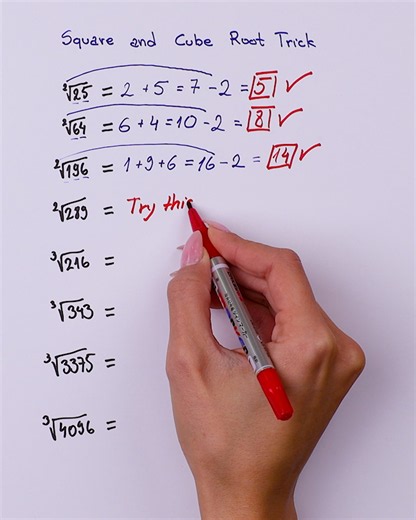 Square and Cube Root Trick
²√25 = 2 + 5 = 7 - 2 = 5 ✓
²√64 = 6 + 4 = 10 - 2 = 8 ✓
²√196 = 1 + 9 + 6 = 16 - 2 = 14 ✓
²√289 = Try this
³√216 =
³√343 =
³√3375 =
³√4096 =